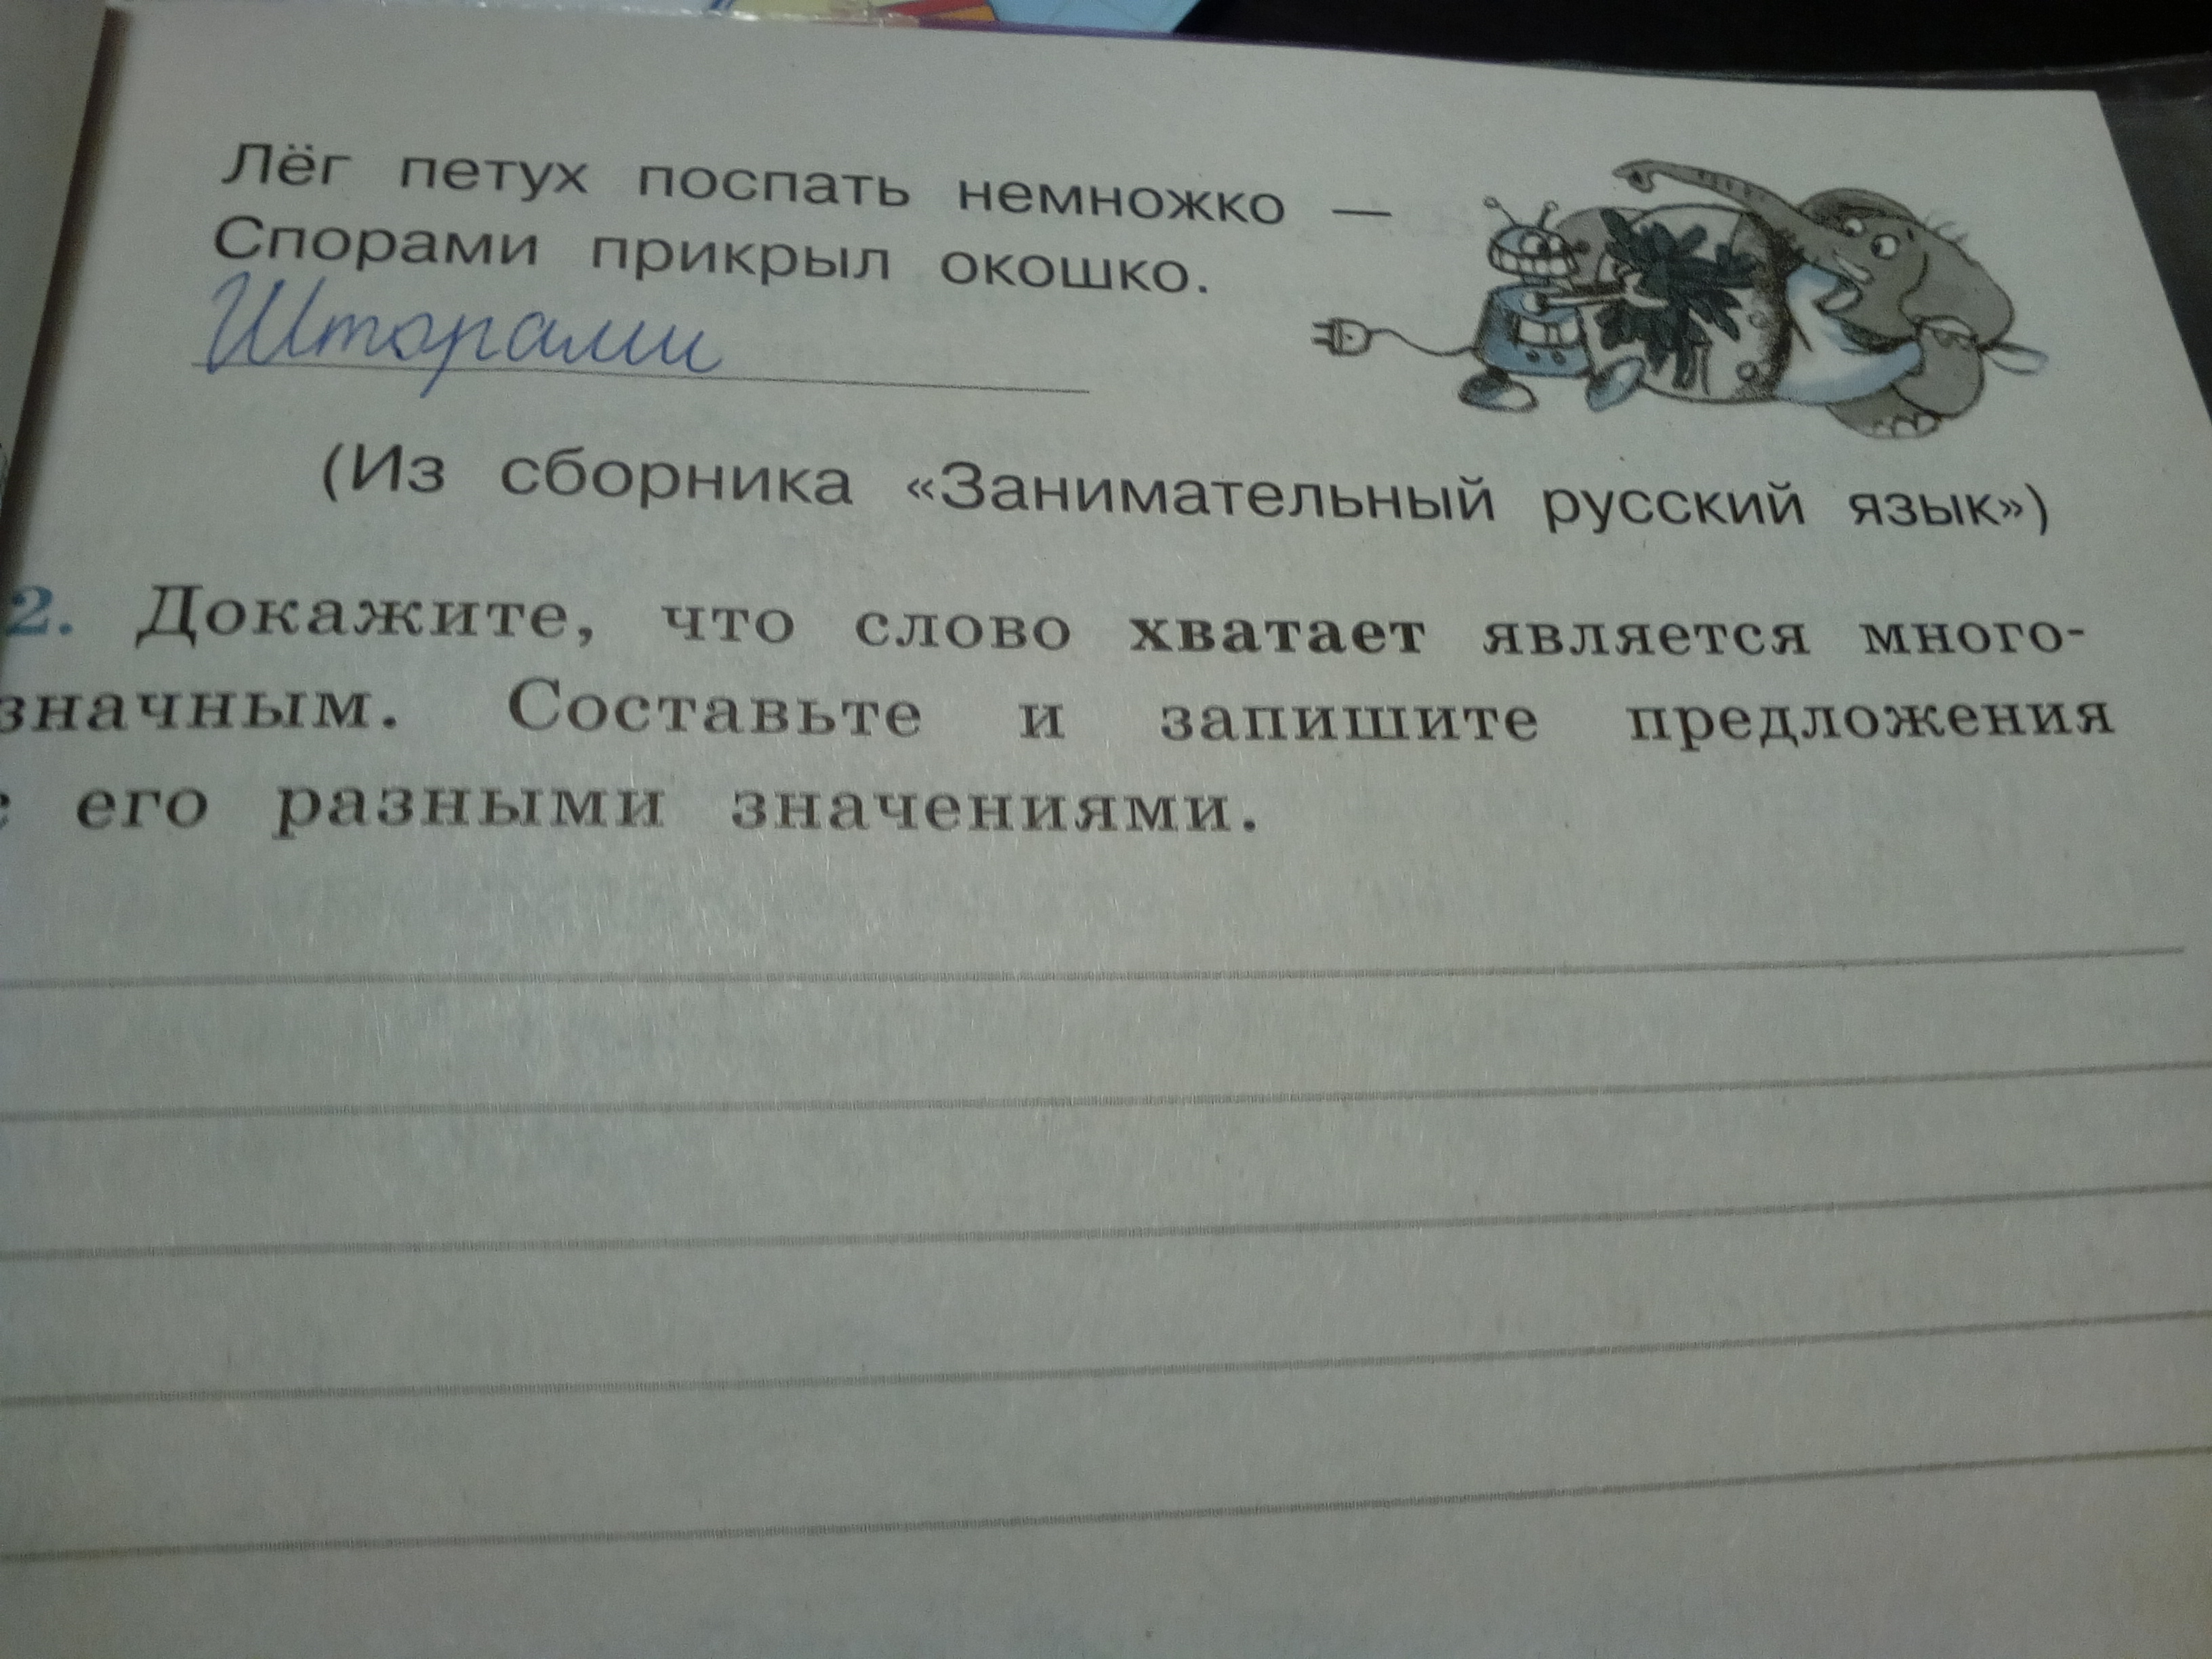 Лёг петух поспать немножко —
Спорами прикрыл окошко.
Шторами
(Из сборника «Занимательный русский язык»)
2. Докажите, что слово хватает является много-
значным. Составьте и запишите предложения
с его разными значениями.